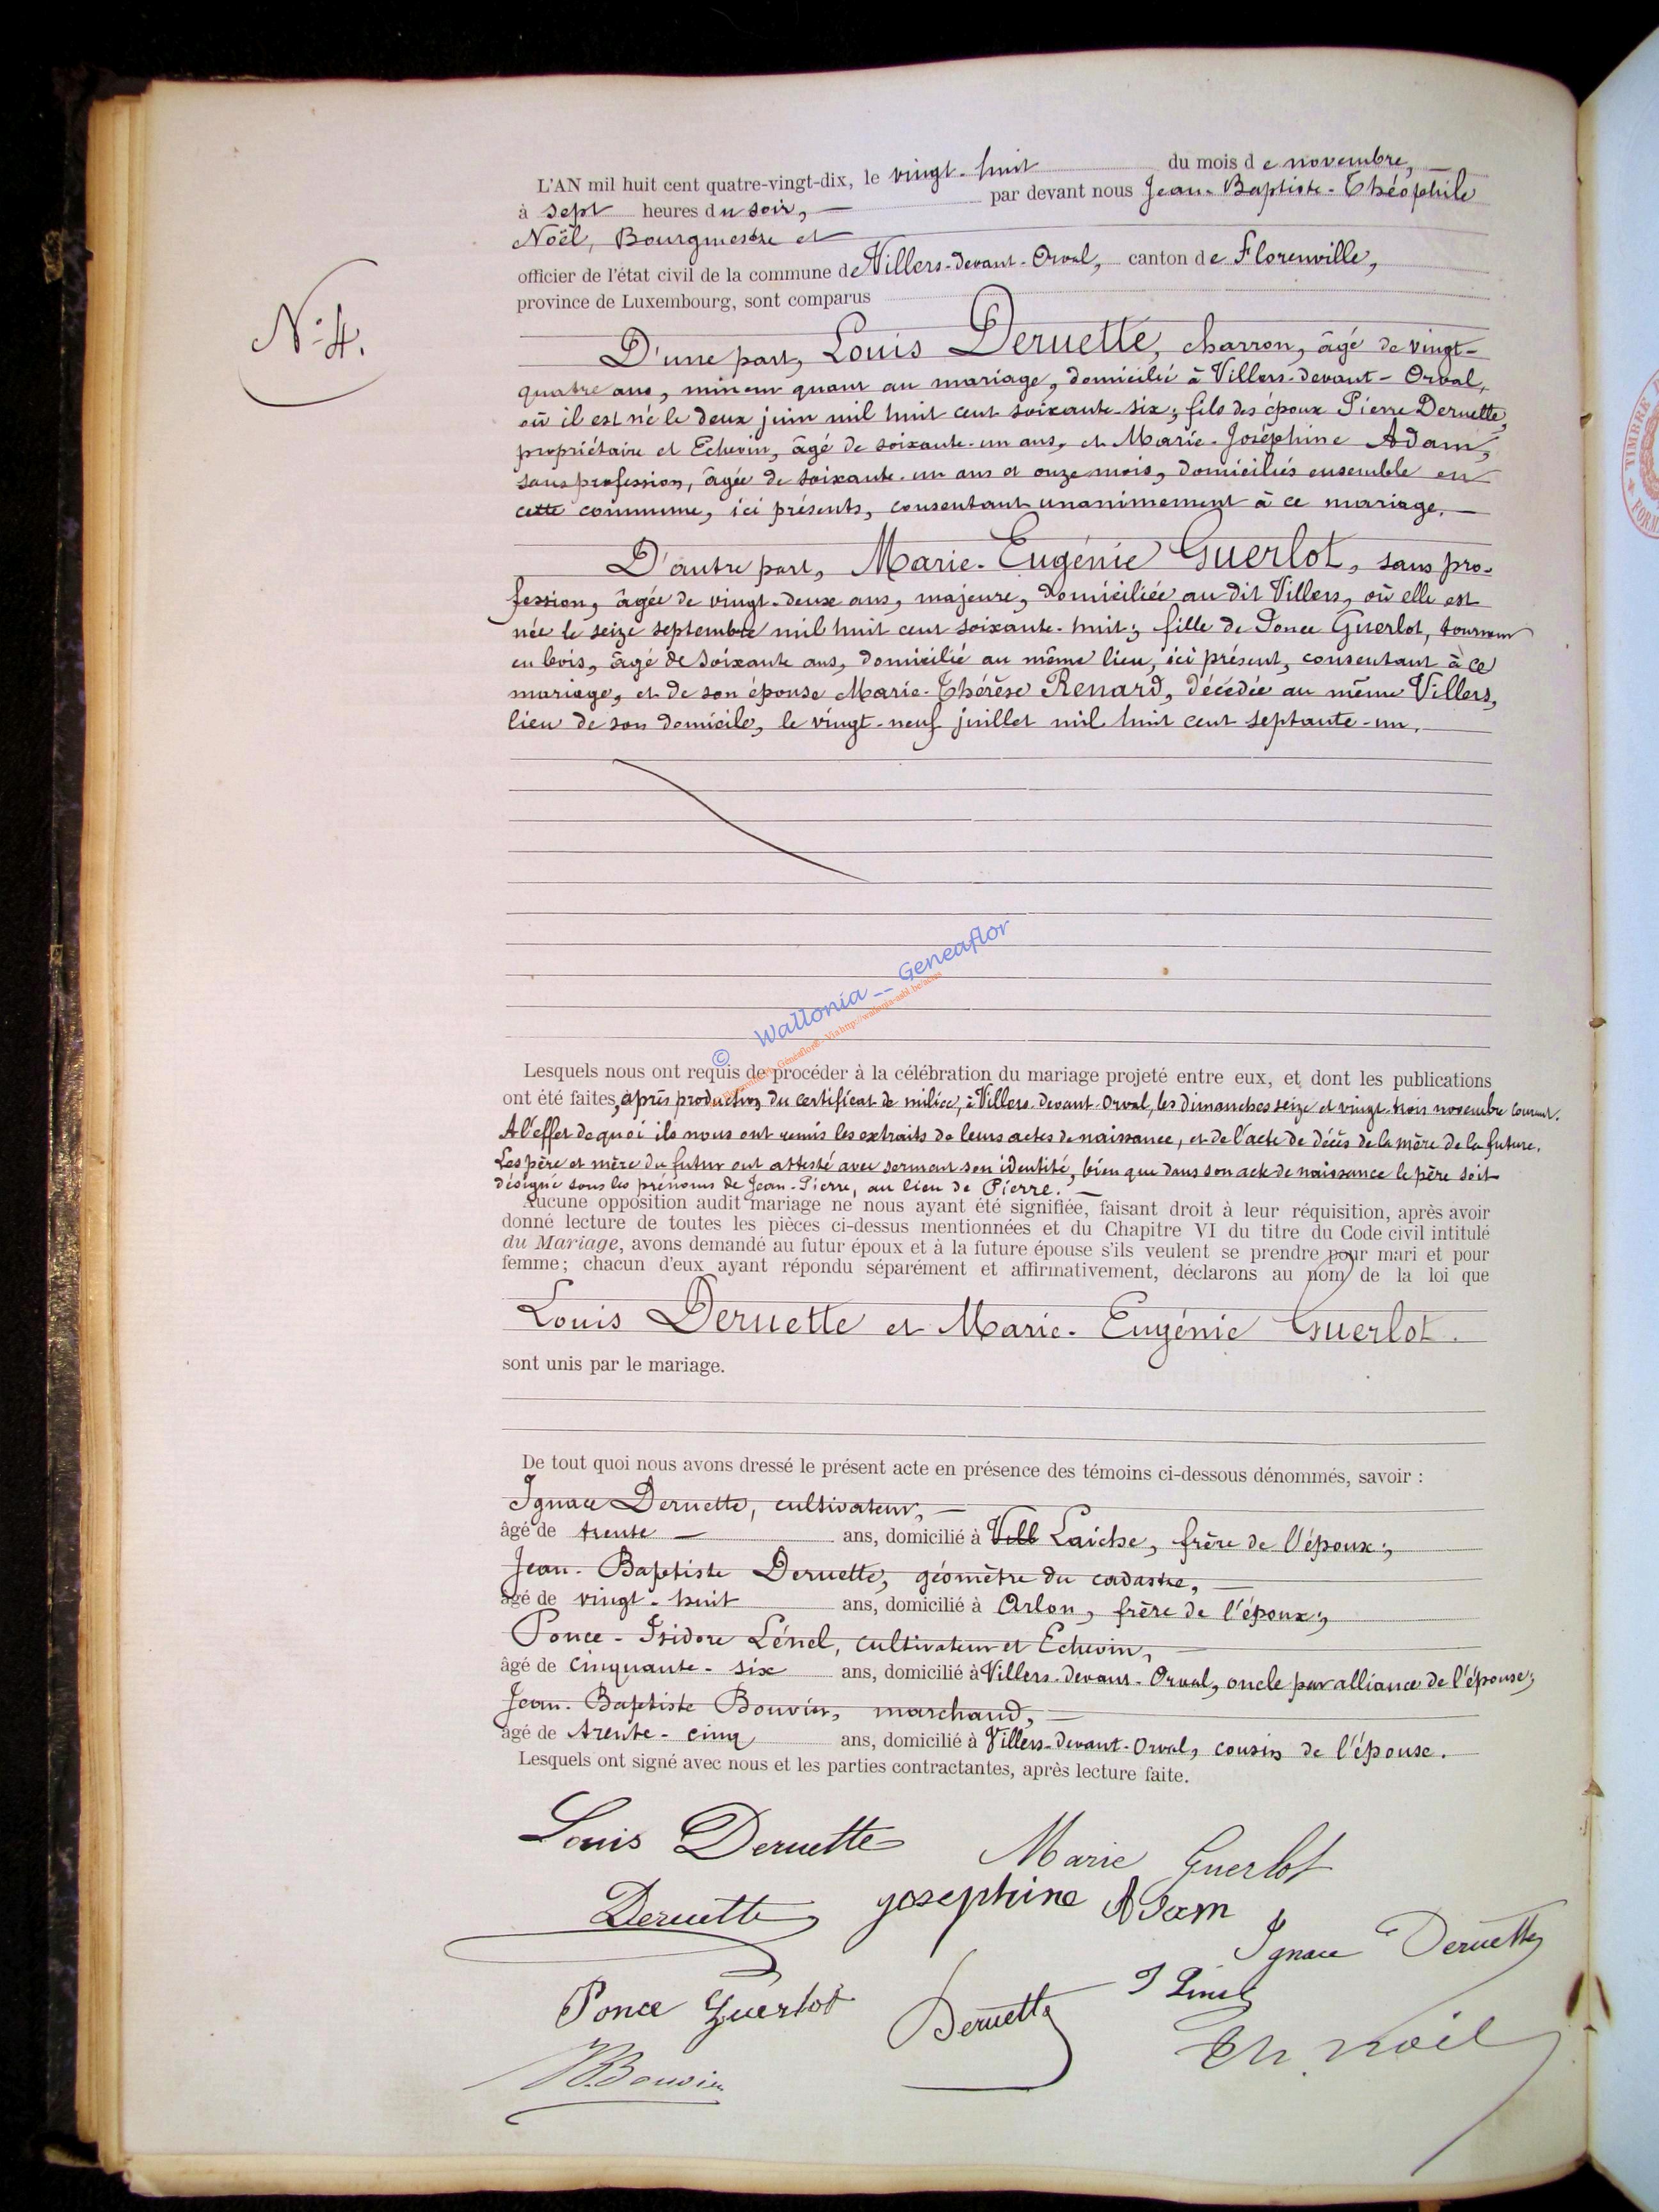 N° 4.
L'AN mil huit cent quatre-vingt-dix, le vingt-huit du mois de novembre,
à sept heures du soir, par devant nous Jean-Baptiste-Théophile
Noël, Bourgmestre et
officier de l'état civil de la commune de Villers-devant-Orval, canton de Florenville,
province de Luxembourg, sont comparus
D'une part, Louis Deruette, charron, âgé de vingt-
quatre ans, mineur quant au mariage, domicilié à Villers-devant-Orval,
où il est né le deux juin mil huit cent soixante-six; fils des époux Pierre Deruette,
propriétaire et Echevin, âgé de soixante-un ans, et Marie-Joséphine Adam,
sans profession, âgée de soixante-un ans et onze mois, domiciliés ensemble en
cette commune, ici présents, consentant unanimement à ce mariage.
D'autre part, Marie-Eugénie Guerlot, sans pro-
fession, âgée de vingt-deux ans, majeure, domiciliée au dit Villers, où elle est
née le seize septembre mil huit cent soixante-huit; fille de Ponce Guerlot, tourneur
en bois, âgé de soixante ans, domicilié au même lieu, ici présent, consentant à ce
mariage, et de son épouse Marie-Thérèse Renard, décédée au même Villers,
lieu de son domicile, le vingt-neuf juillet mil huit cent septante-un.
© Wallonia -- Geneaflor
Lesquels nous ont requis de procéder à la célébration du mariage projeté entre eux, et dont les publications
ont été faites, après production du certificat de milice, à Villers-devant-Orval, les dimanches seize et vingt-trois novembre courant.
A l'effet de quoi ils nous ont remis les extraits de leurs actes de naissance, et de l'acte de décès de la mère de la future.
Les père et mère du futur ont attesté avec serment son identité, bien que dans son acte de naissance le père soit
désigné sous les prénoms de Jean-Pierre, au lieu de Pierre.
Aucune opposition audit mariage ne nous ayant été signifiée, faisant droit à leur réquisition, après avoir
donné lecture de toutes les pièces ci-dessus mentionnées et du Chapitre VI du titre du Code civil intitulé
du Mariage, avons demandé au futur époux et à la future épouse s'ils veulent se prendre pour mari et pour
femme; chacun d'eux ayant répondu séparément et affirmativement, déclarons au nom de la loi que
Louis Deruette et Marie-Eugénie Guerlot.
sont unis par le mariage.
De tout quoi nous avons dressé le présent acte en présence des témoins ci-dessous dénommés, savoir :
Ignace Deruette, cultivateur,
âgé de trente ans, domicilié à Vill Laiche, frère de l'époux;
Jean-Baptiste Deruette, géomètre du cadastre,
âgé de vingt-huit ans, domicilié à Arlon, frère de l'époux;
Ponce-Isidore Lénel, cultivateur et Echevin,
âgé de cinquante-six ans, domicilié à Villers-devant-Orval, oncle par alliance de l'épouse;
Jean-Baptiste Bouvier, marchand,
âgé de trente-cinq ans, domicilié à Villers-devant-Orval, cousin de l'épouse.
Lesquels ont signé avec nous et les parties contractantes, après lecture faite.
Louis Deruette Marie Guerlot
Deruette josephine Adam
Ignace Deruette
Ponce Guerlot Deruette
JBBouvier Th. Noël
TIMBRE